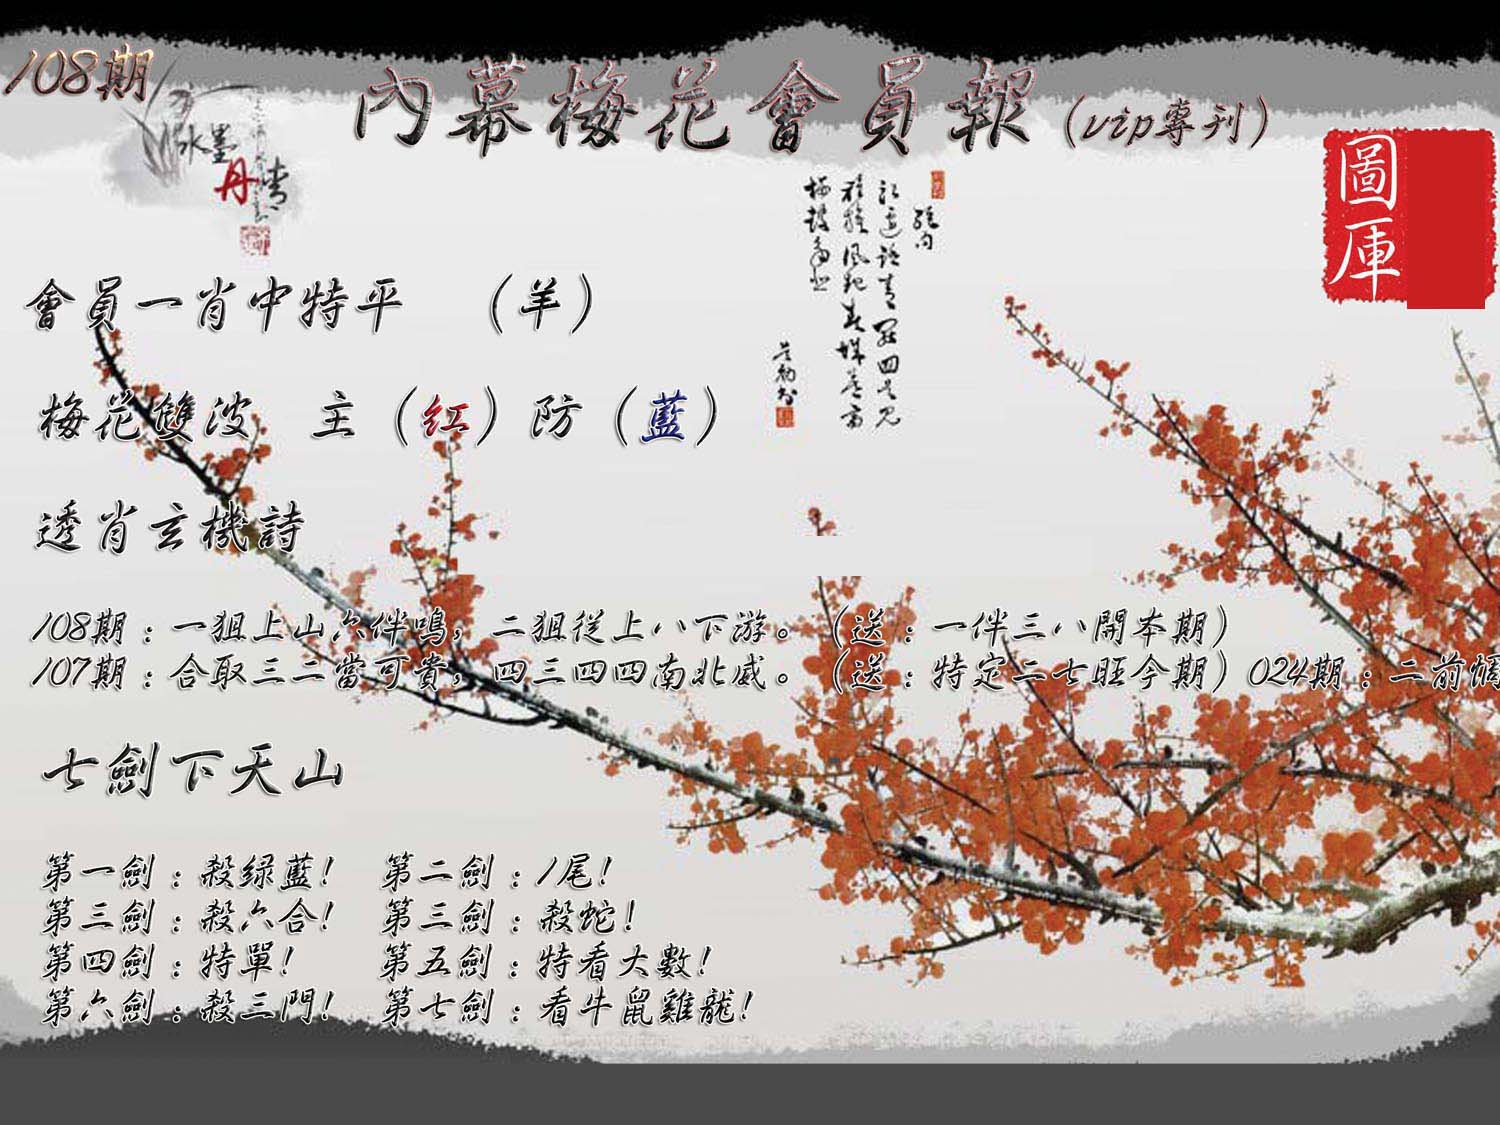 108期
內幕梅花會員報(vip專刊)
水墨
丹青
圖庫
會員一肖中特平 （羊）
梅花雙波 主（紅）防（藍）
透肖玄機詩
108期：一狙上山六伴鳴，二狙從上八下游。（送：一伴三八開本期）
107期：合取三二當可貴，四三四四南北威。（送：特定二七旺今期）024期：二前
七劍下天山
第一劍：殺绿藍! 第二劍：1尾!
第三劍：殺六合! 第三劍：殺蛇!
第四劍：特單! 第五劍：特看大數!
第六劍：殺三門! 第七劍：看牛鼠雞龍!